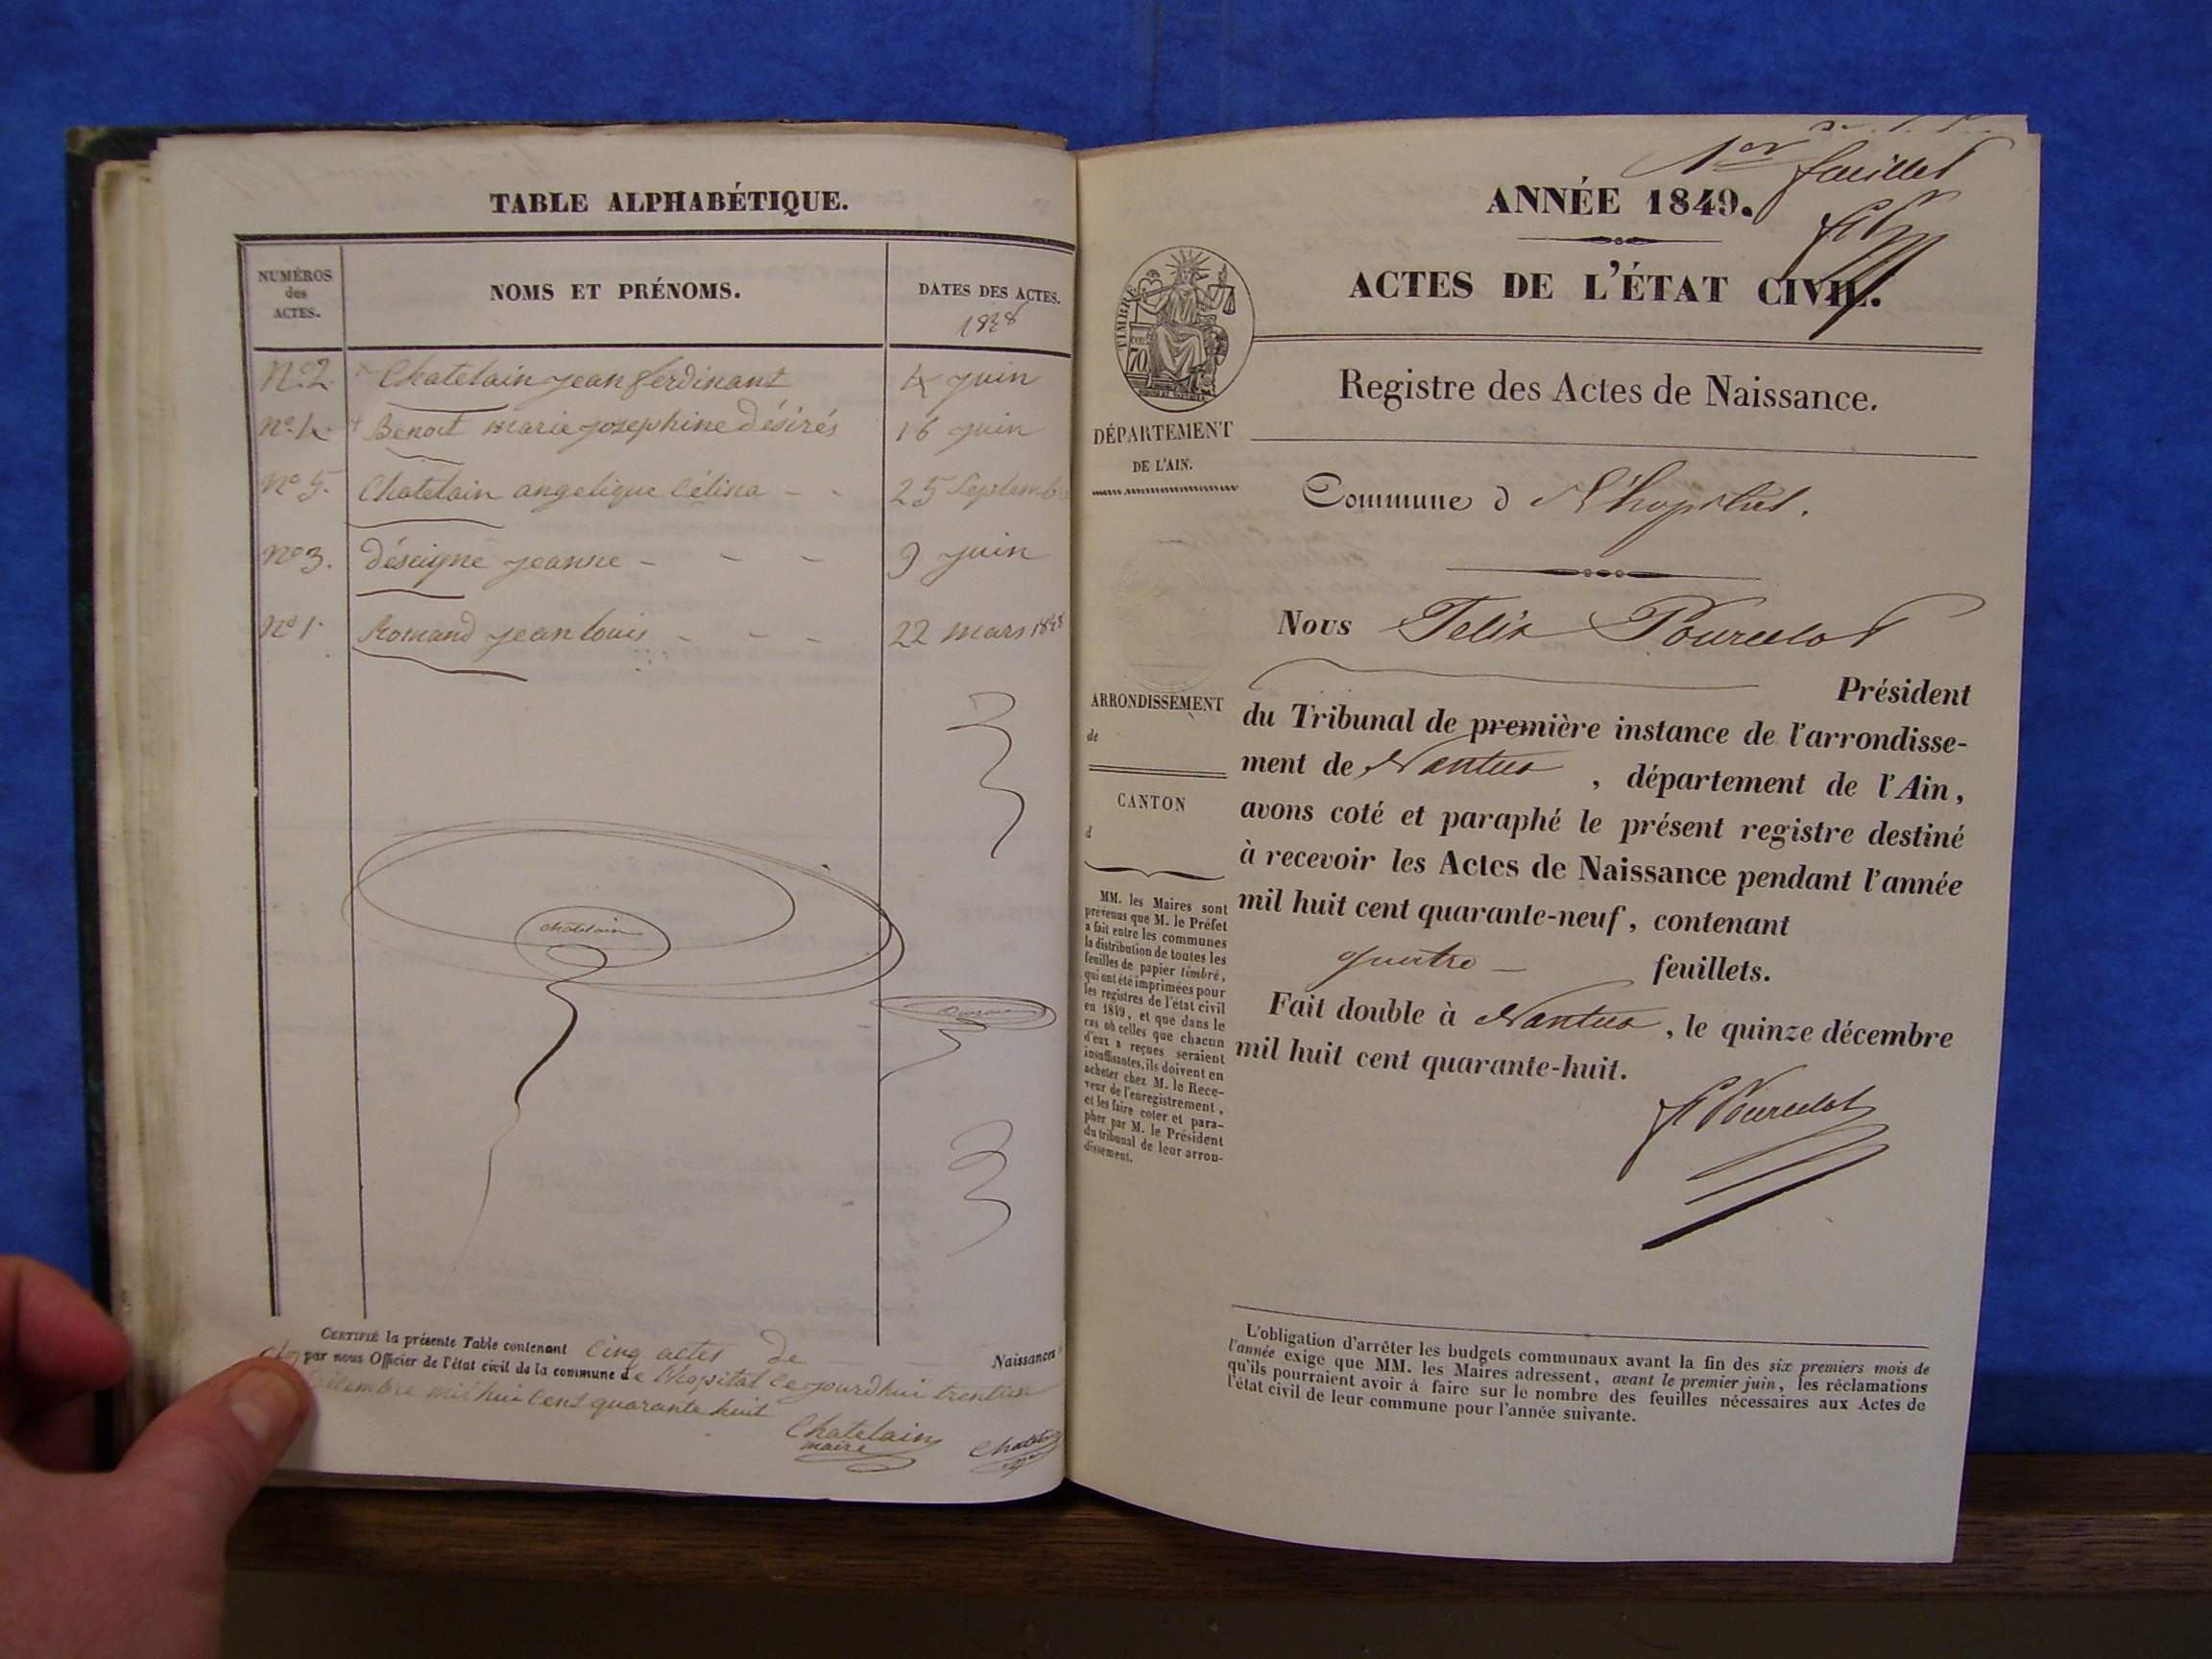 TABLE ALPHABÉTIQUE.
NUMÉROS
des
ACTES.
NOMS ET PRÉNOMS.
DATES DES ACTES.
1848
N° 2. Chatelain jean ferdinant 4 juin
n° 4. Benoit marie josephine Désirés 16 juin
N° 5. Chatelain angelique Célina - - 25 Septembre
n° 3. déseigne jeanne - - - 9 juin
N° 1. Romand jean louis - - - 22 mars 1848
chatelain
CERTIFIÉ la présente Table contenant cinq actes de Naissances
par nous Officier de l'état civil de la commune de l'hôpital ce jourdhui trentiun
décembre mil hui cent quarante huit
Chatelain
maire
1er feuillet
ANNÉE 1849.
ACTES DE L'ÉTAT CIVIL.
TIMBRE
70
Registre des Actes de Naissance.
DÉPARTEMENT
DE L'AIN.
Commune d l'hopital.
Nous Felix Pourcelot
Président
du Tribunal de première instance de l'arrondisse-
ment de Nantua, département de l'Ain,
avons coté et paraphé le présent registre destiné
à recevoir les Actes de Naissance pendant l'année
mil huit cent quarante-neuf, contenant
quatre — feuillets.
Fait double à Nantua, le quinze décembre
mil huit cent quarante-huit.
f Pourcelot
ARRONDISSEMENT
de
CANTON
d
MM. les Maires sont
prévenus que M. le Préfet
a fait entre les communes
la distribution de toutes les
feuilles de papier timbré,
qui ont été imprimées pour
les registres de l'état civil
en 1849, et que dans le
cas où celles que chacun
d'eux a reçues seraient
insuffisantes, ils doivent en
acheter chez M. le Rece-
veur de l'enregistrement,
et les faire coter et para-
pher par M. le Président
du tribunal de leur arron-
dissement.
L'obligation d'arrêter les budgets communaux avant la fin des six premiers mois de
l'année exige que MM. les Maires adressent, avant le premier juin, les réclamations
qu'ils pourraient avoir à faire sur le nombre des feuilles nécessaires aux Actes de
l'état civil de leur commune pour l'année suivante.